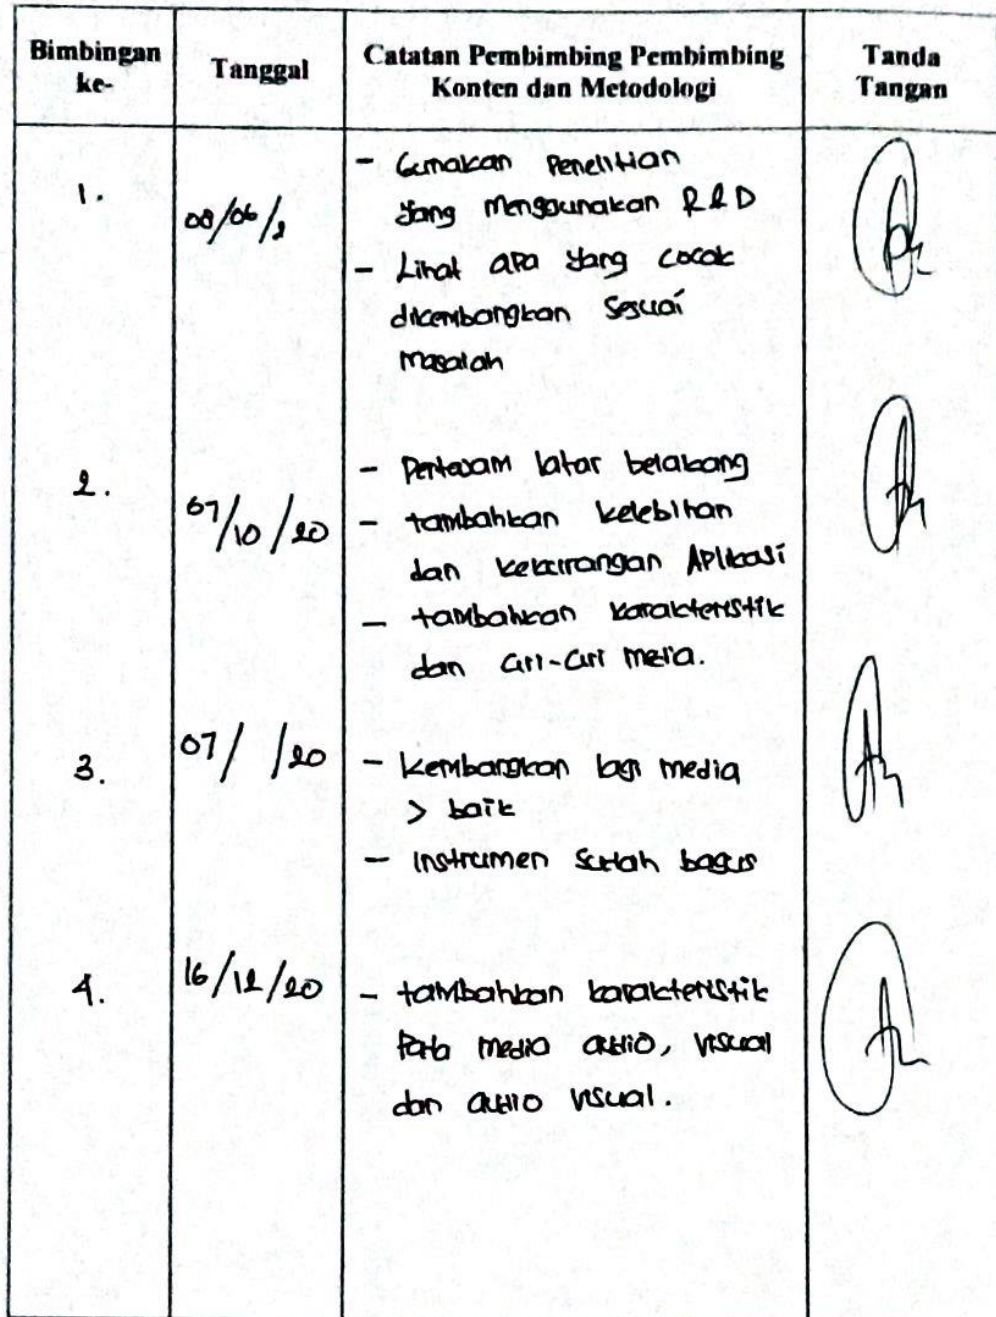 Bimbingan ke-
Tanggal
Catatan Pembimbing Pembimbing
Konten dan Metodologi
Tanda Tangan
1.
08/06/2
- Gunakan Penelitian
yang menggunakan R&D
- Lihat apa yang cocok
dikembangkan sesuai
masalah
2.
07/10/20
- Pertajam latar belakang
- tambahkan kelebihan
dan kekurangan Aplikasi
- tambahkan karakteristik
dan ciri-ciri media.
3.
07/ /20
- kembangkan lagi media
> baik
- instrumen sudah bagus
4.
16/12/20
- tambahkan karakteristik
Pada media audio, visual
dan audio visual.